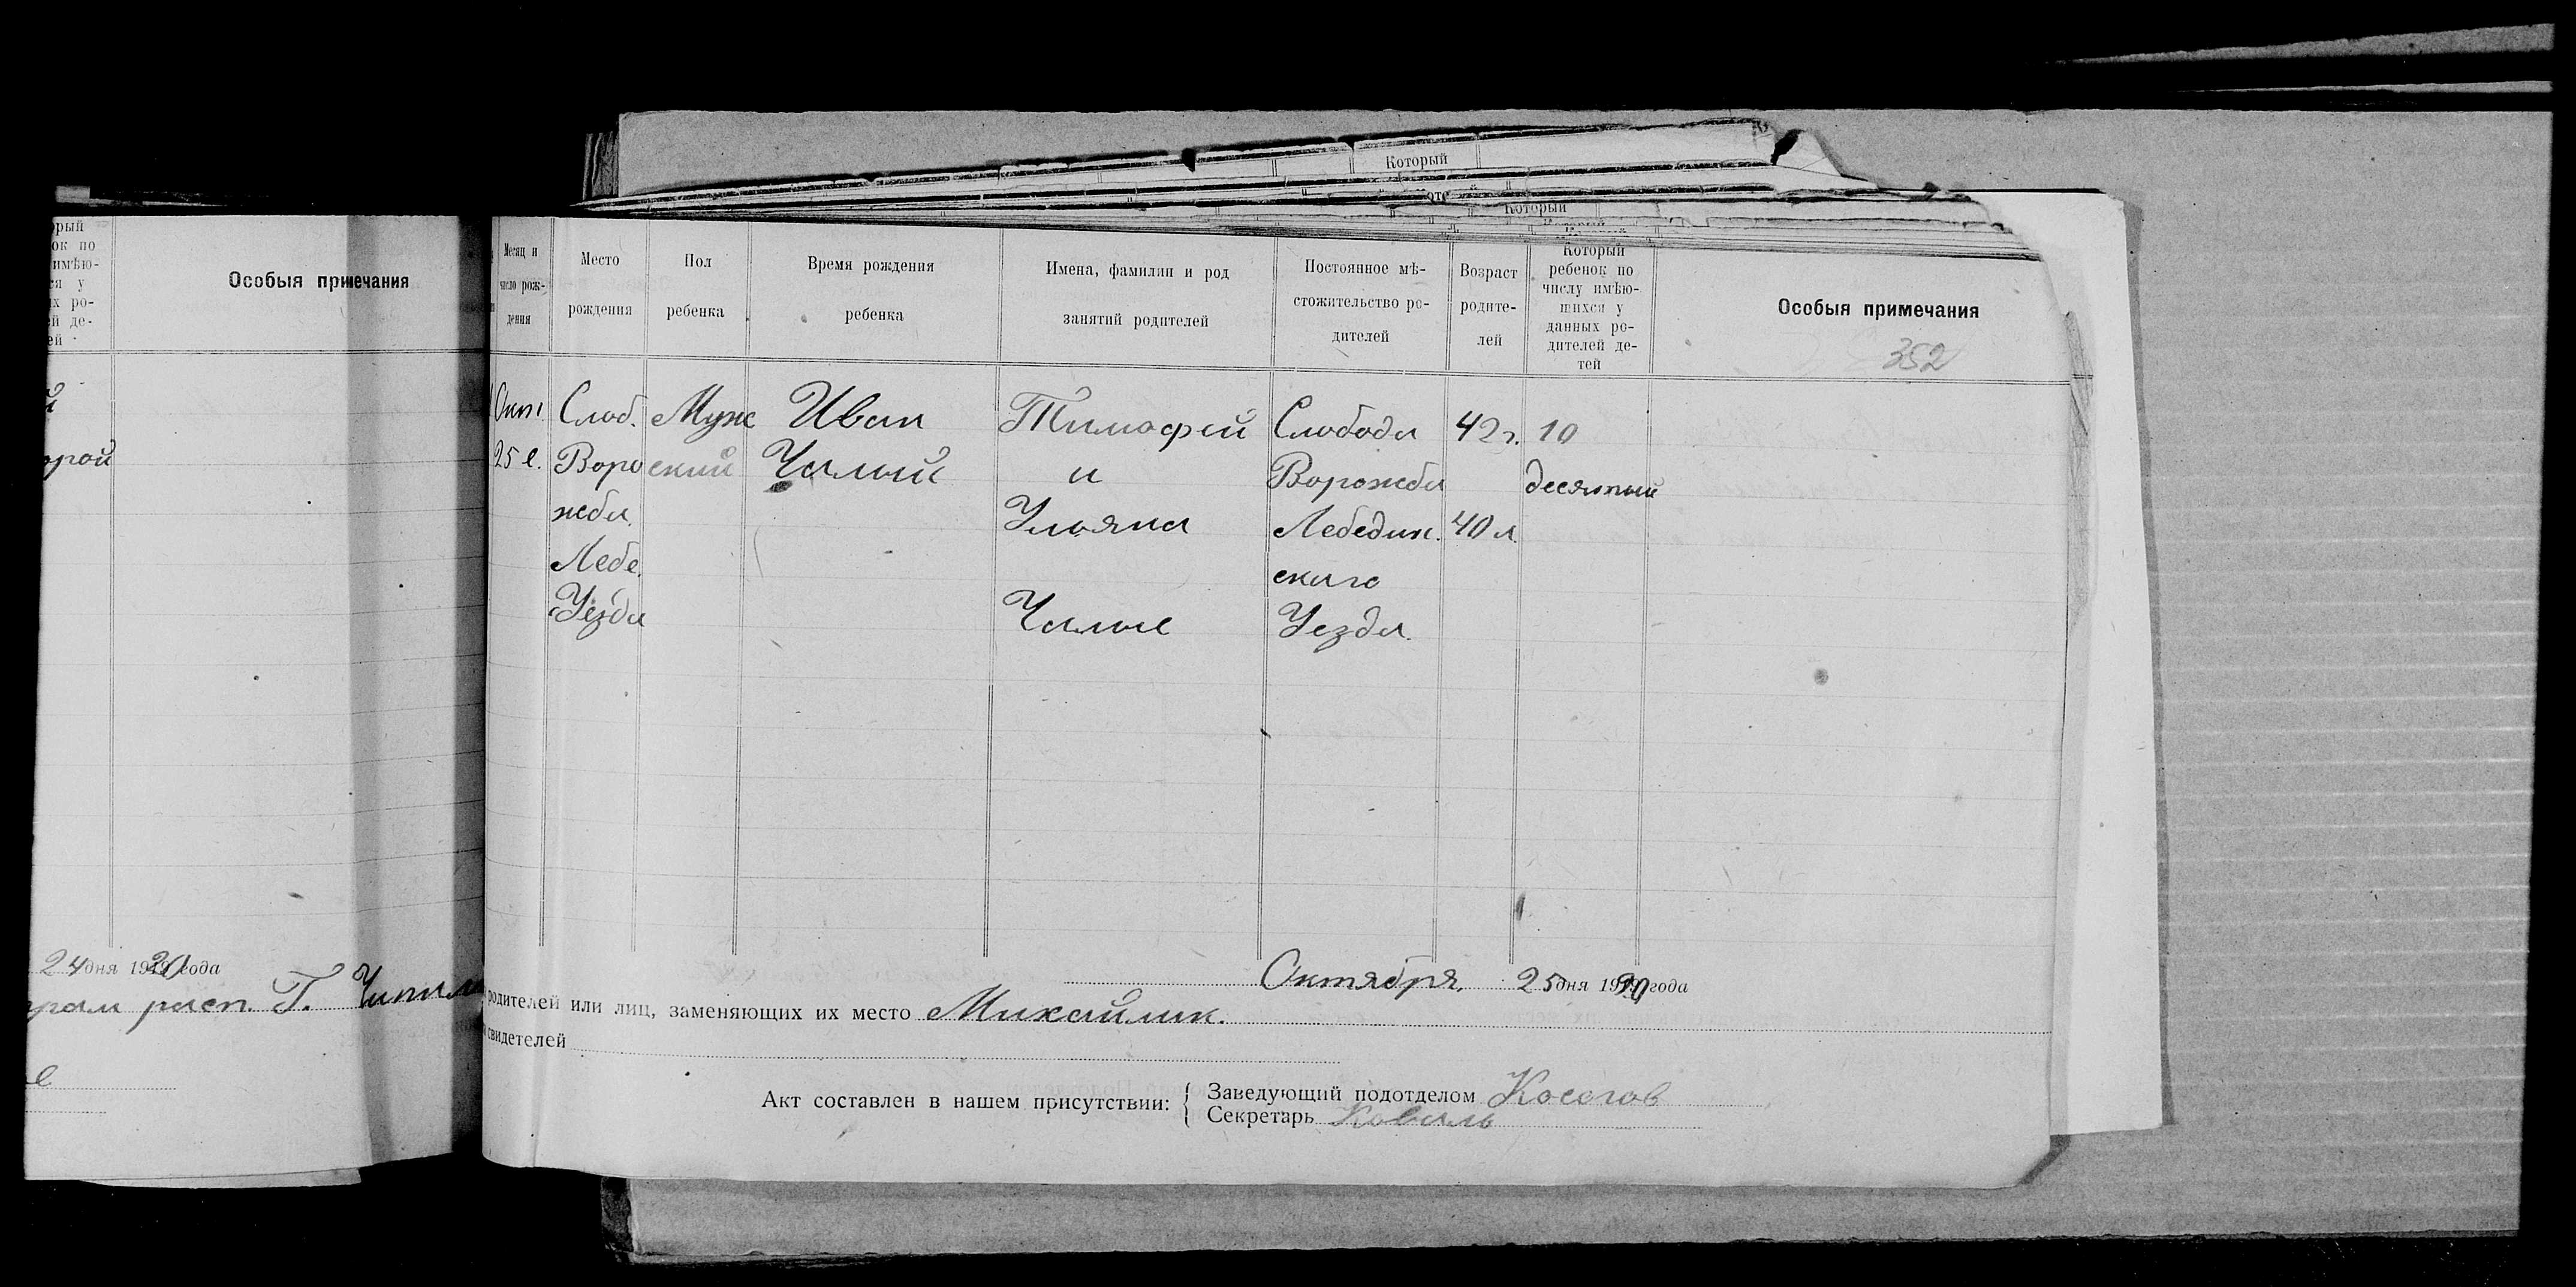 орый
ок по
имѣю-
ся у
их ро-
ей де-
ей
Особыя примечания
й
орой
24 дня 1920 года
расп. Г.
Который
Который
Месяц и
число рож-
дения
Место
рождения
Пол
ребенка
Время рождения
ребенка
Имена, фамилии и род
занятий родителей
Постоянное мѣ-
стожительство ро-
дителей
Возраст
родите-
лей
Который
ребенок по
числу имѣю-
шихся у
данных ро-
дителей де-
тей
Особыя примечания
352
Окт
25 е.
Слоб.
Воро
жба
Лебе.
Уезда
Муж
ский
Иван
Чалый
Тимофей
и
Ульяна
Чалые
Слобода
Ворожба
Лебедин.
скаго
Уезда.
42 г.
40 л.
10
десятый
Октября, 25 дня 1920 года
родителей или лиц, заменяющих их место Михайлик.
свидетелей
Акт составлен в нашем присутствии:
Заведующий подотделом Косогов
Секретарь Коваль